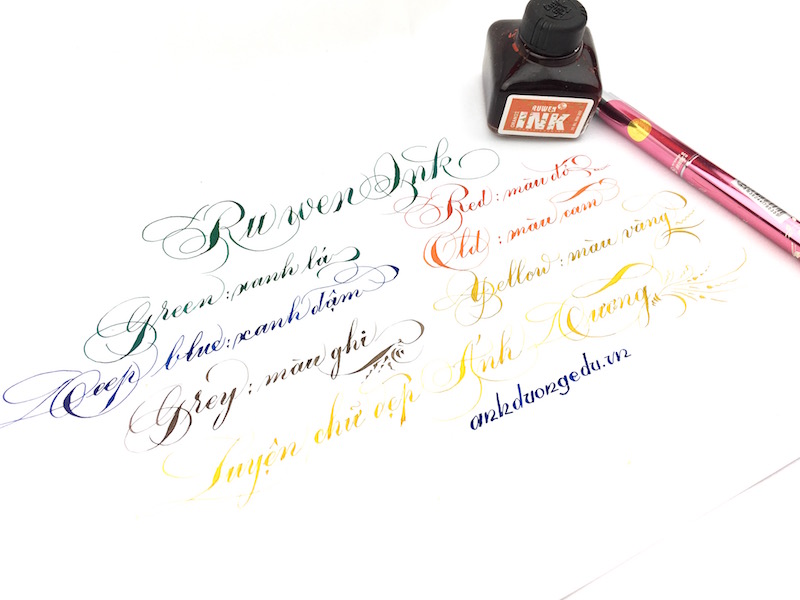 RUWEN
INK
Ruwen Ink
Green : xanh lá
Deep blue : xanh đậm
Grey : màu ghi
Red : màu đỏ
Old : màu cam
Yellow : màu vàng
Luyện chữ đẹp Ánh Dương
anhduongedu.vn